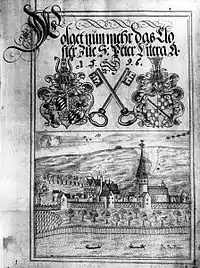 Volget nun mehr das Clo
ster zue S: Peter Vitera A.
1 5 9 6.